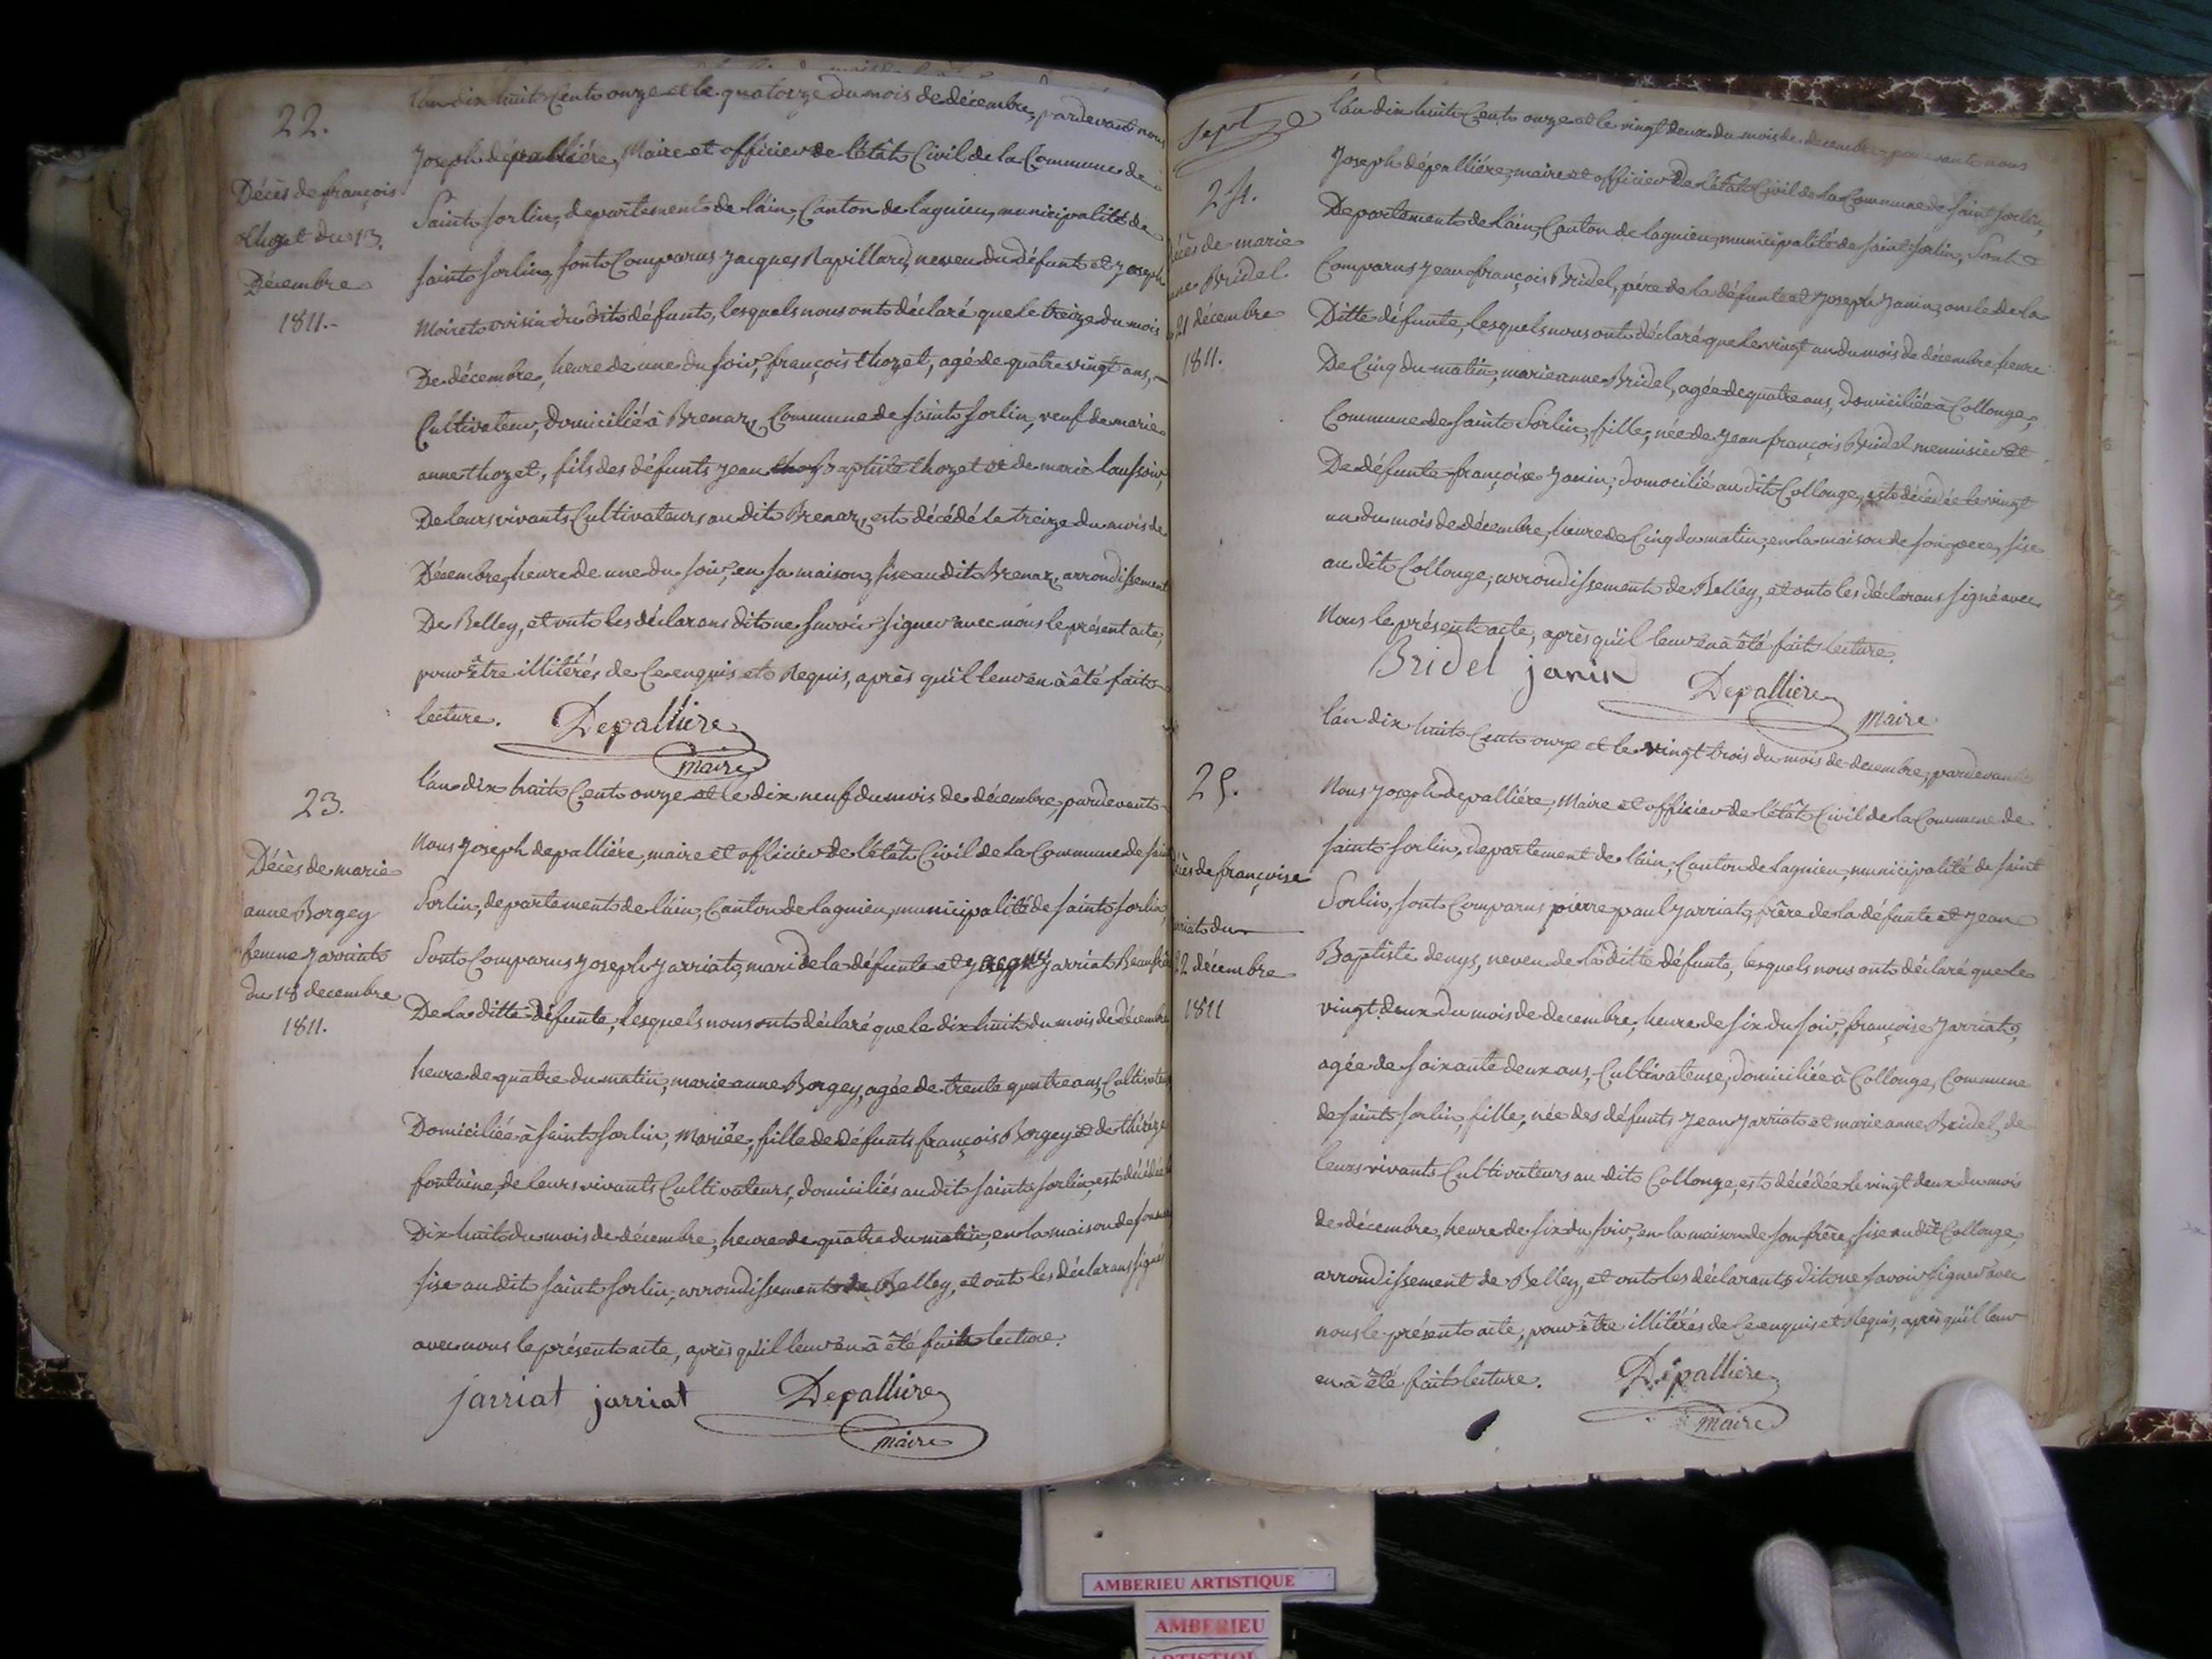 22.
Décès de françois
thozet du 13
Décembre
1811.-
l'an dix huit Cent onze et le quatorze du mois de décembre, pardevant nous
Joseph dépalliére, Maire et officier de l'êtât Civil de la Commune de
Saint Sorlin, departement de l'ain, Canton de lagnieu, municipalité de
saint Sorlin, sont Comparus Jacques Rapillard, neveu du défunt et Joseph
Moiret voisin du dit défunt, lesquels nous ont déclaré que le treize du mois
De décembre, heure de une du soir, françois thozet, agé de quatre vingt ans,
Cultivateur, domicilié à Brenaz, Commune de saint Sorlin, veuf de marie
anne thozet, fils des défunts Jean Baptiste thozet et de marie
De leurs vivants Cultivateurs au dit Brenaz, est décédé le treize du mois de
Décembre, heure de une du soir, en sa maison, sise au dit Brenaz, arrondissement
De Belley, et ont les déclarans dit ne savoir signer avec nous le présent acte,
pour être illitérés de Ce enquis et Requis, après qu'il leur en à été fait
lecture. Depalliere
maire
23.
Décès de marie
anne Borgey
femme Jarriat
du 18 decembre
1811.
l'an dix huit Cent onze et le dix neuf du mois de décembre, pardevant
Nous Joseph depalliére, maire et officier de l'êtât Civil de la Commune de saint
Sorlin, departement de l'ain, Canton de lagnieu, municipalité de saint Sorlin
Sont Comparus Joseph Jarriat, mari de la défunte et Jarriat Beaufrère
De la ditte défunte, lesquels nous ont déclaré que le dix huit du mois de décembre
heure de quatre du matin, marie anne Borgey, agée de trente quatre ans,
Domiciliée à saint Sorlin, Mariée, fille de défunts françois Borgey et de thérèze
fontaine, de leurs vivants Cultivateurs, domiciliés au dit saint Sorlin, est décédée
Dix huit du mois de décembre, heure de quatre du matin, en la maison de son
sise au dit saint Sorlin, arrondissement de Belley, et ont les déclarans signé
avec nous le présent acte, après qu'il leur en à été fait lecture.
jarriat jarriat Depalliere
maire
Sept
24.
décès de marie
anne Bridel
21 décembre
1811.
l'an dix huit Cent onze et le vingt deux du mois de decembre, pardevant nous
Joseph dépalliére, maire et officier de l'êtât Civil de la Commune de saint Sorlin,
Departement de l'ain, Canton de lagnieu, municipalité de saint Sorlin, Sont
Comparus Jean françois Bridel, pére de la défunte et Joseph Janin, oncle de la
Ditte défunte, lesquels nous ont déclaré que le vingt un du mois de décembre, heure
De Cinq du matin, marie anne Bridel, agée de quatre ans, domiciliée à Collonge,
Commune de saint Sorlin, fille, née de Jean françois Bridel menuisier et
De défunte françoise Janin, domocilié au dit Collonge, est décédée le vingt
un du mois de décembre, heure de Cinq du matin, en la maison de son pere, sise
au dit Collonge, arrondissement de Belley, et ont les déclarans signé avec
Nous le présent acte, après qu'il leur en à été fait lecture.
Bridel janin Depalliere
maire
25.
décès de françoise
Jarriat du
22 décembre
1811
l'an dix huit Cent onze et le vingt trois du mois de decembre, pardevant
Nous Joseph depalliére, Maire et officier de l'êtât Civil de la Commune de
saint Sorlin, departement de l'ain, Canton de lagnieu, municipalité de saint
Sorlin, sont Comparus pierre paul Jarriat, frère de la défunte et Jean
Baptiste denys, neveu de la ditte défunte, lesquels nous ont déclaré que le
vingt deux du mois de decembre, heure de six du soir, françoise Jarriat,
agée de soixante deux ans, Cultivateuse, domiciliée à Collonge, Commune
de saint Sorlin, fille, née des défunts Jean Jarriat et marie anne Bridel, de
leurs vivants Cultivateurs au dit Collonge, est décédée le vingt deux du mois
de décembre, heure de six du soir, en la maison de son frère, sise au dit Collonge,
arrondissement de Belley, et ont les déclarants dit ne savoir signer avec
nous le présent acte, pour être illitérés de Ce enquis et Requis, après qu'il leur
en à été fait lecture. Dépalliere
maire
AMBERIEU ARTISTIQUE
AMBERIEU
ARTISTIQUE